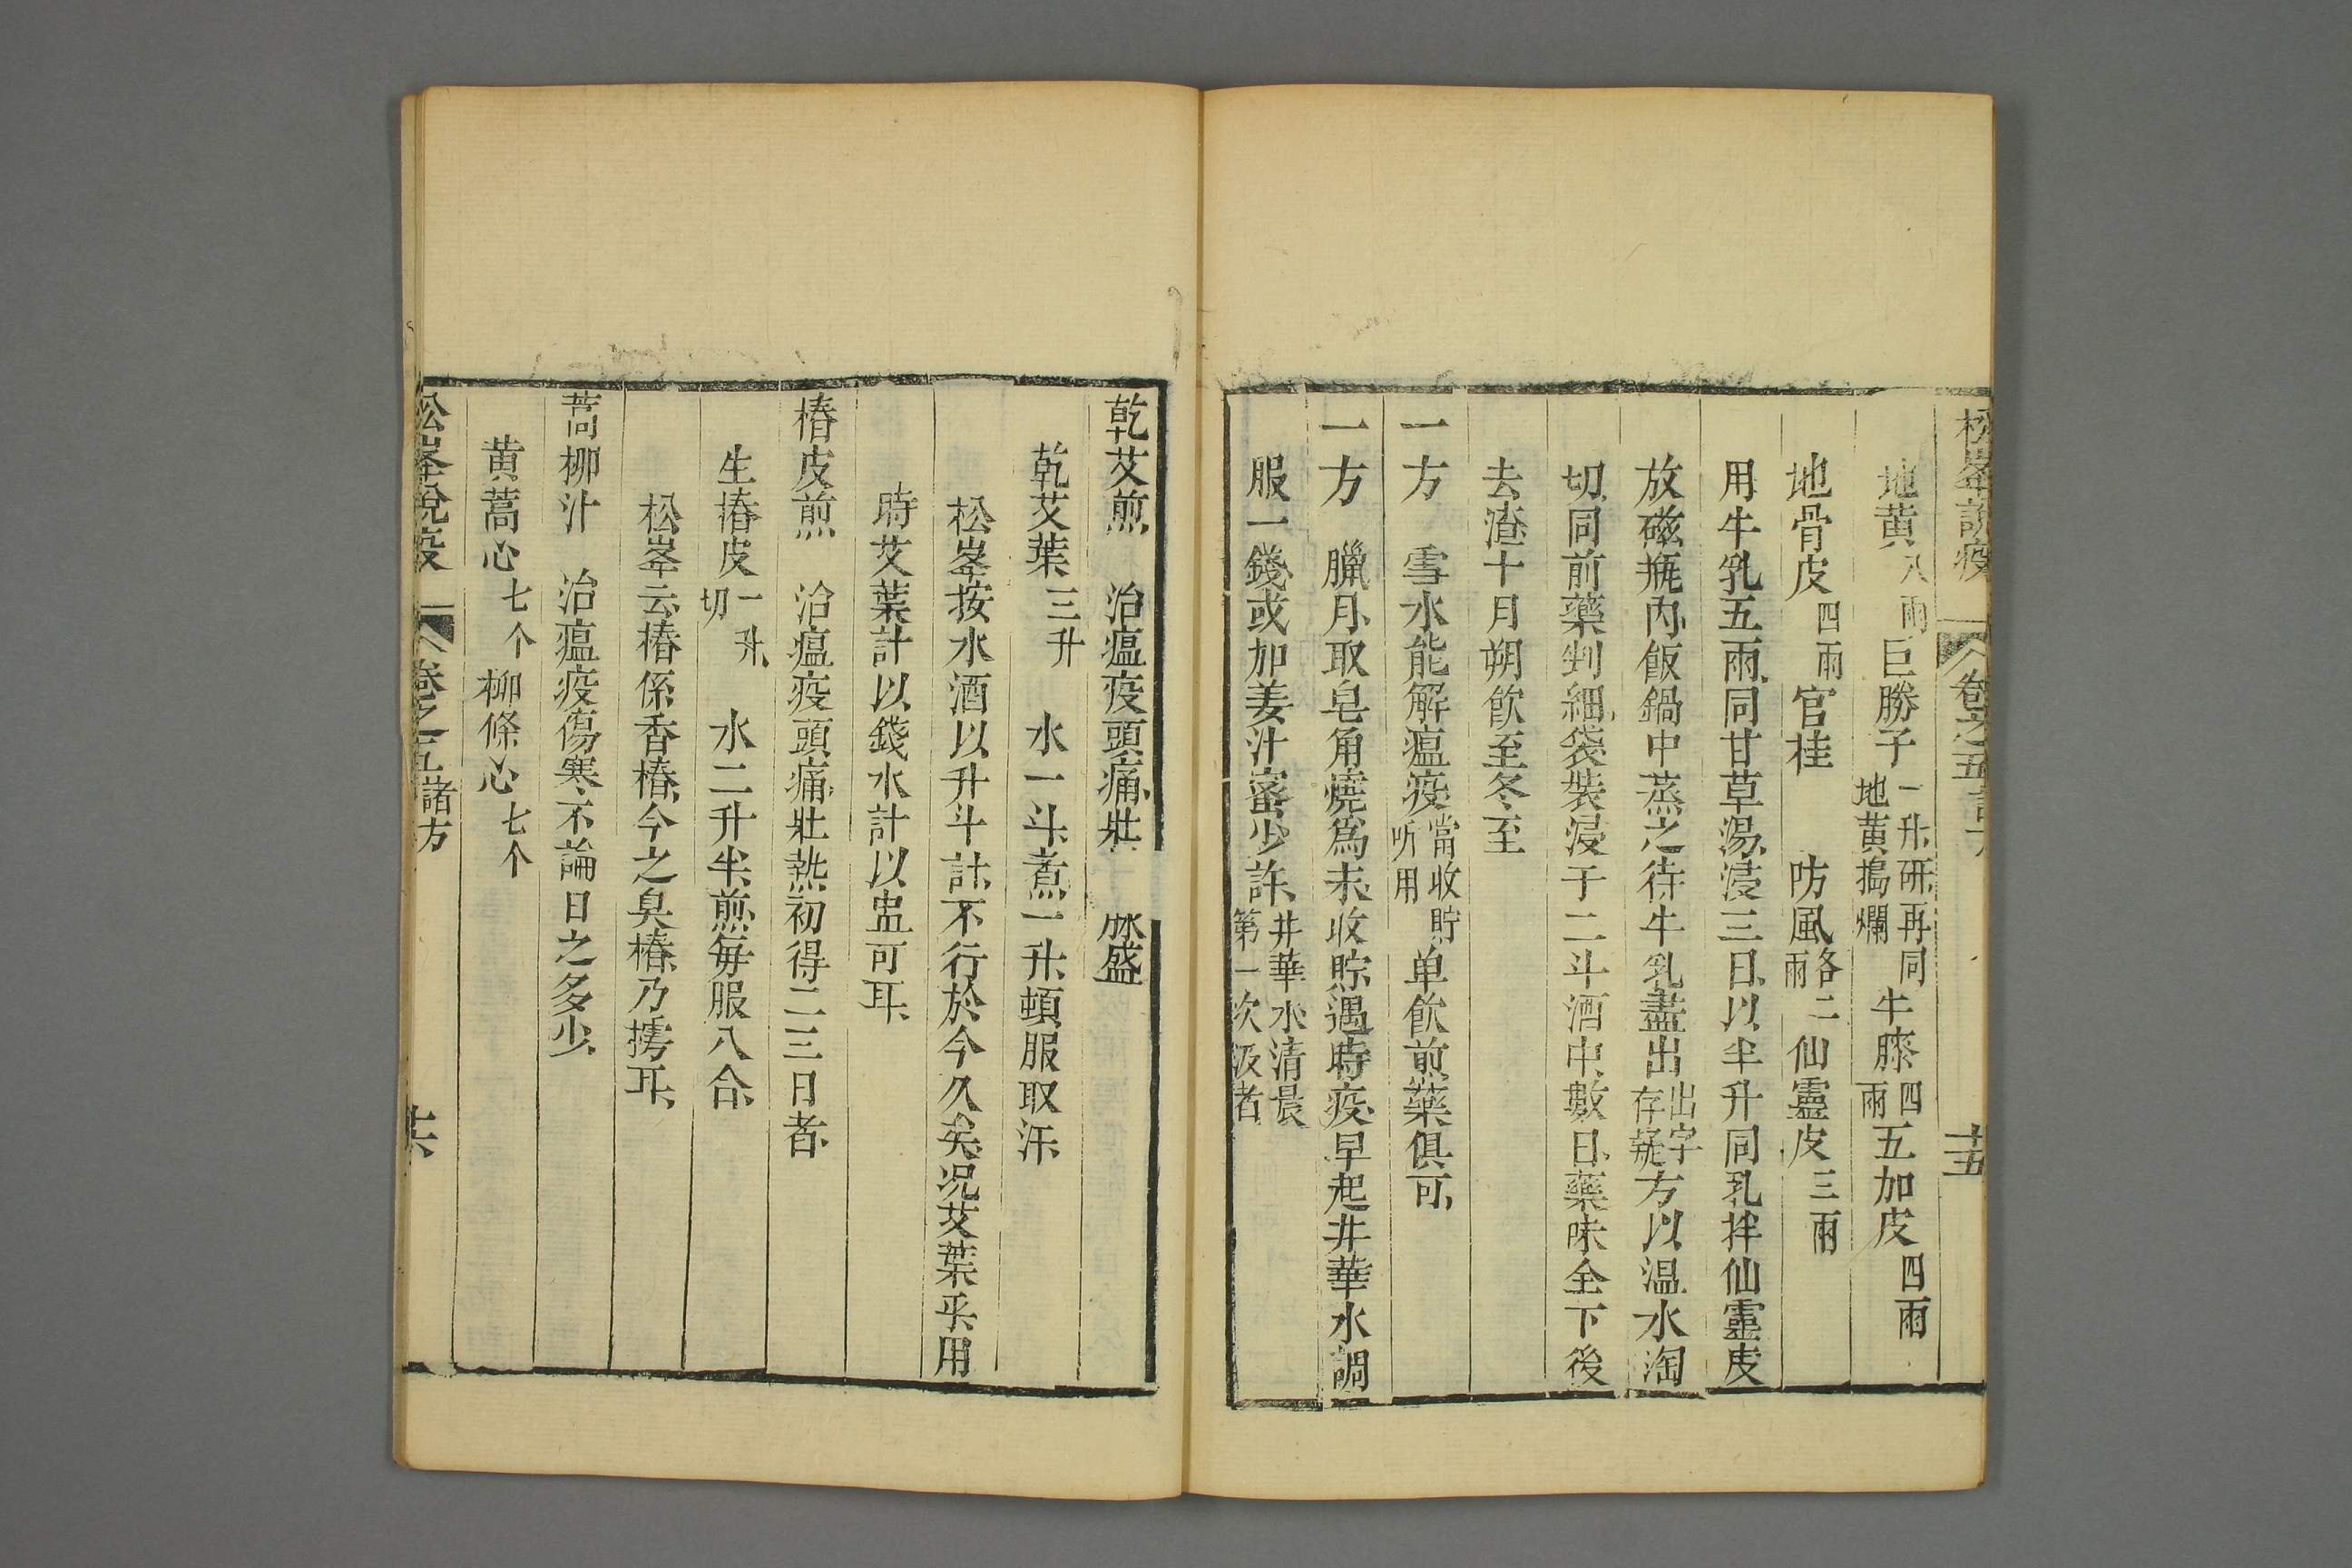 松峯說疫 卷之五 十五
地黃八兩巨勝子一升研再同地黃搗爛牛膝四兩五加皮四兩
地骨皮四兩官桂 防風各二兩仙靈皮三兩
用牛乳五兩同甘草湯浸三日以半升同乳拌仙靈皮
放磁瓶內飯鍋中蒸之待牛乳盡出出字存疑方以温水淘
切同前藥剉細袋裝浸于二斗酒中數日藥味全下後
去渣十月朔飲至冬至
一方 雪水能解瘟疫當收貯听用单飲煎藥俱可
一方 臘月取皂角燒爲末收貯遇時疫早起井華水調
服一錢或加姜汁蜜少許井華水清晨第一次汲者
乾艾煎 治瘟疫頭痛壯 脉盛
乾艾葉三升 水一斗煮一升頓服取汗
松峯按水酒以升斗計不行於今久矣况艾葉乎用
時艾葉計以錢水計以盅可耳
椿皮煎 治瘟疫頭痛壯熱初得二三日者
生椿皮一升切 水二升半煎每服八合
松峯云椿係香椿今之臭椿乃樗耳
蒿柳汁 治瘟疫傷寒不論日之多少
黄蒿心七个柳條心七个
松峯說疫 卷之五諸方 十六